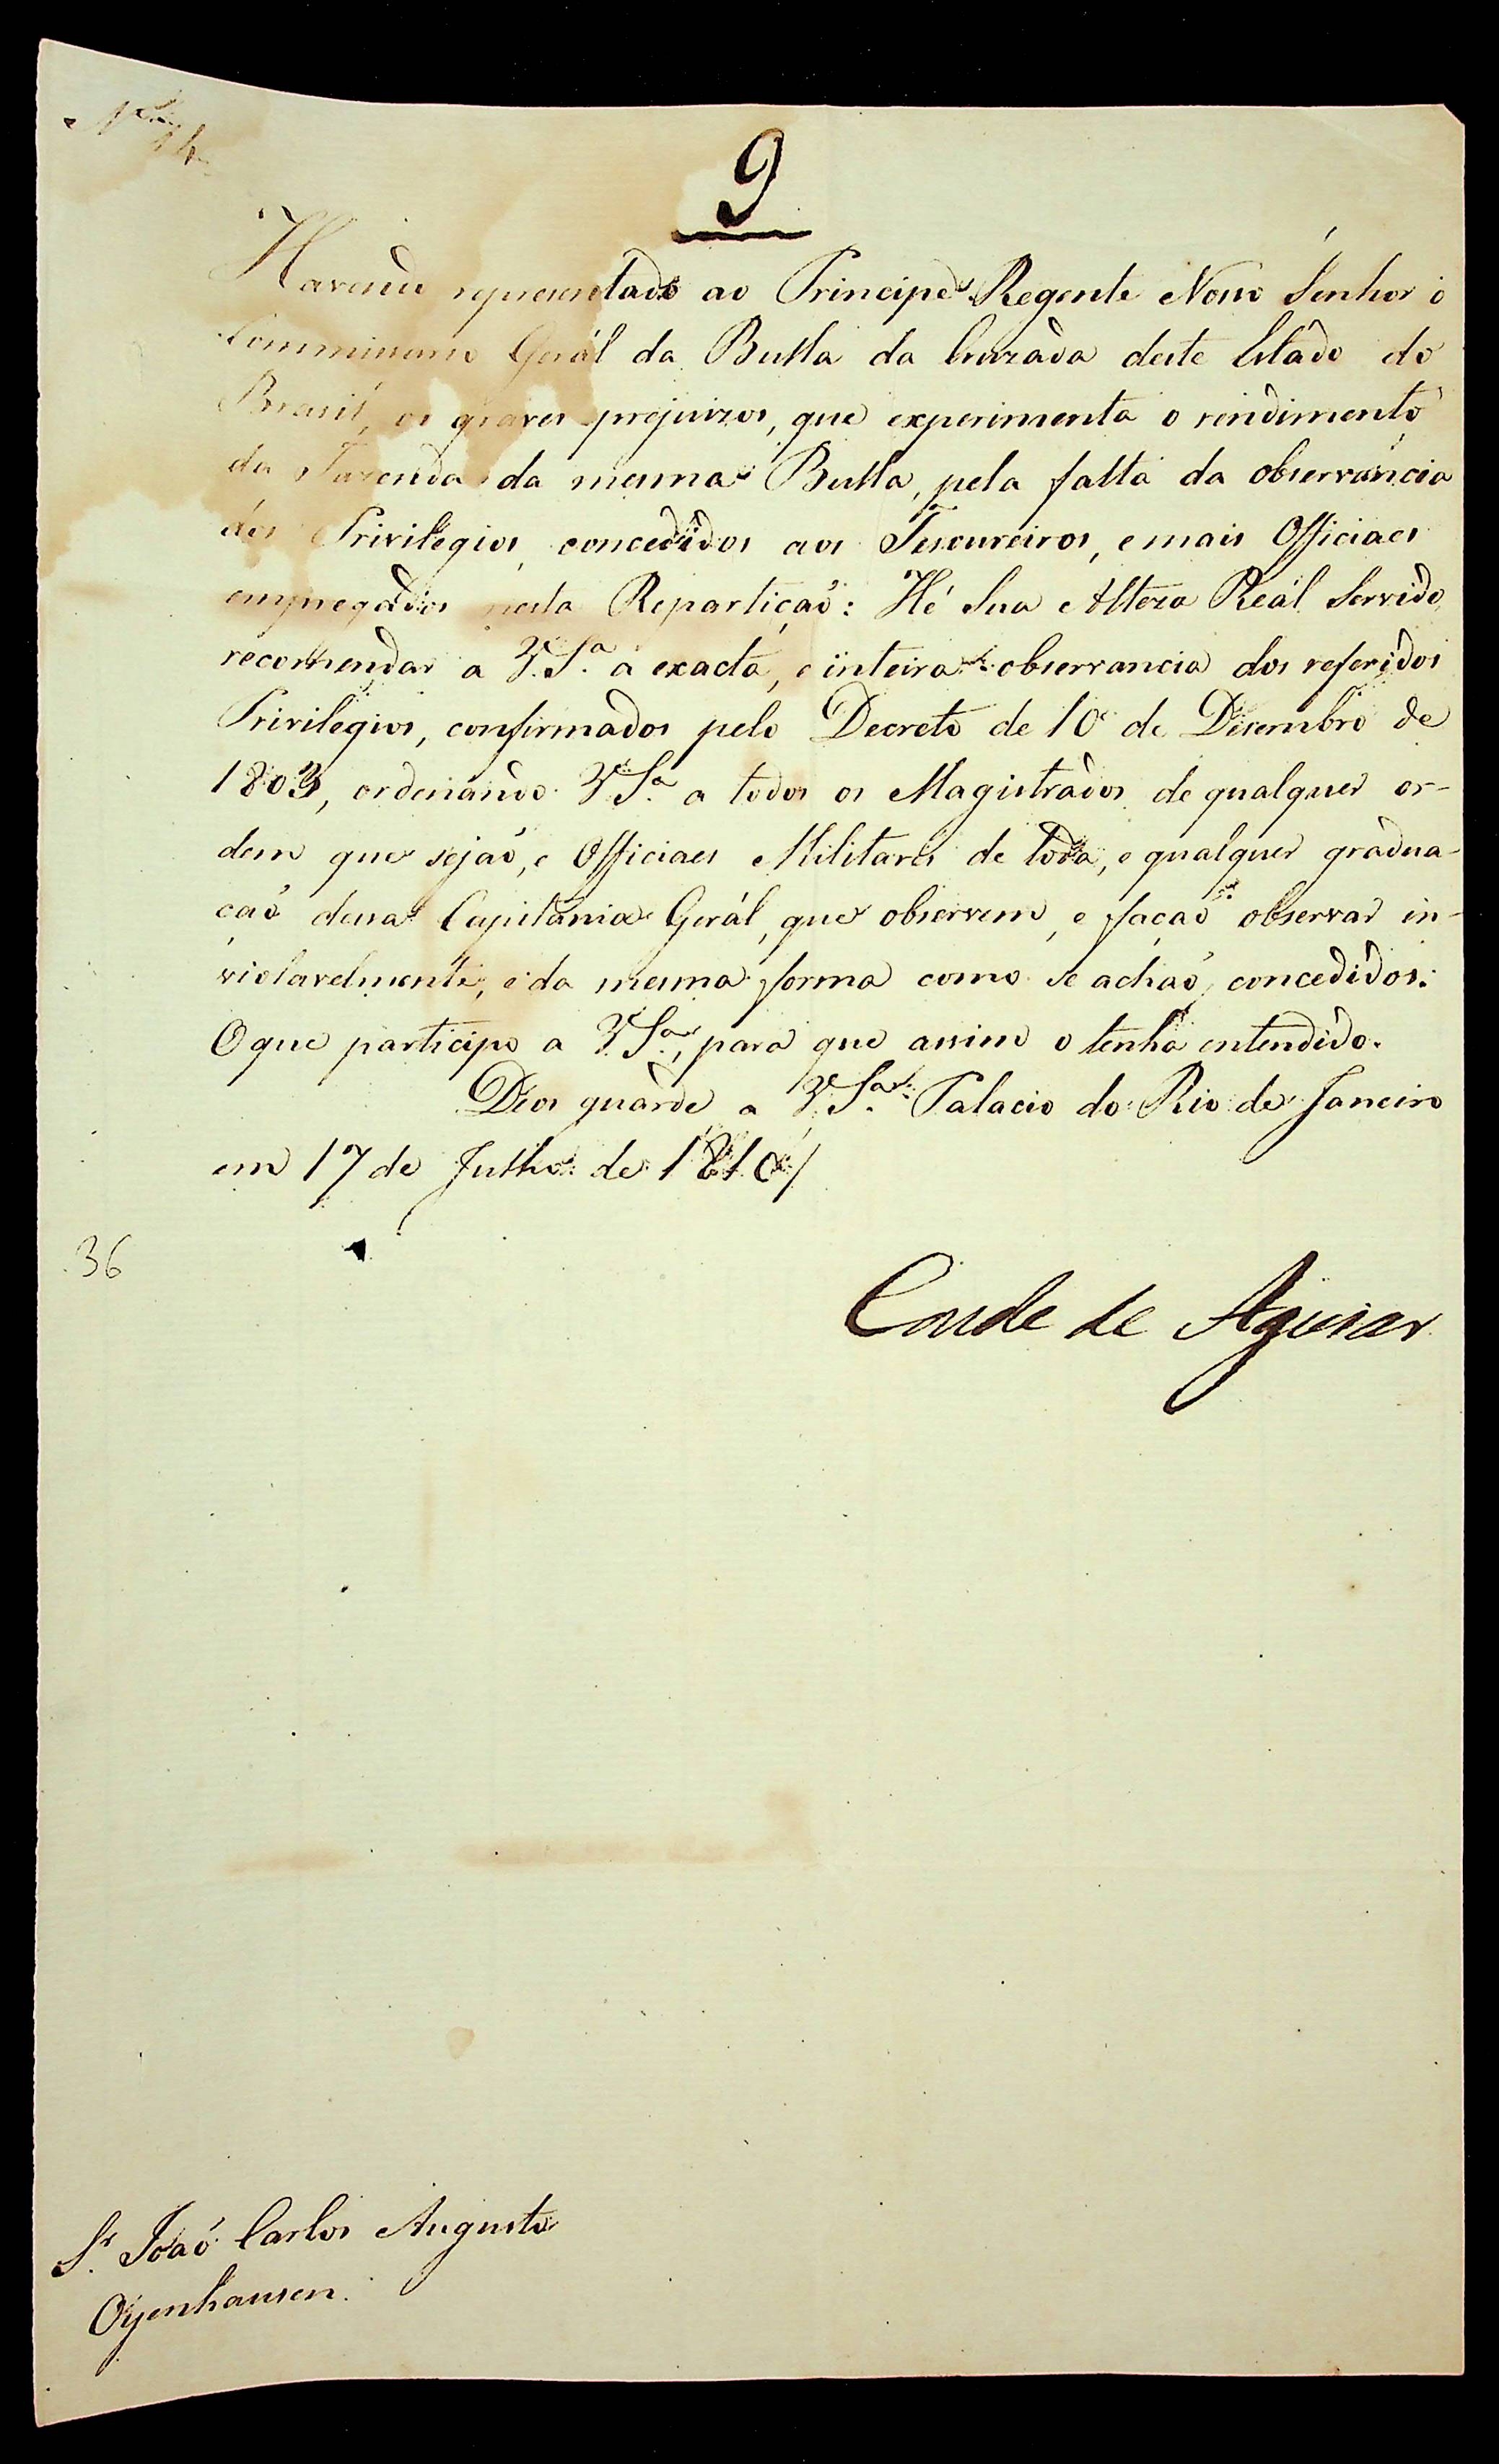 9
Havendo representado ao Principe Regente Nosso Senhor o
Commissario Gerál da Bulla da Cruzada deste Estado do
Brasil, os graves prejuizos, que experimenta o rendimento
da Fazenda da mesma Bulla, pela falta da observancia
dos Privilegios, concedidos aos Tesoureiros, e mais Officiaes
empregados nesta Repartiçaõ: Hé Sua Alteza Reál Servido
recomendar a V. S.ª a exacta, e inteira observancia dos referidos
Privilegios, confirmados pelo Decreto de 10 de Dezembro de
1803, ordenando V. S.ª a todos os Magistrados de qualquer or-
dem que sejaõ, e Officiaes Militares de toda, e qualquer gradua-
çaõ dessa Capitania Gerál, que observem, e façaõ observar in-
violavelmente, e da mesma forma como se achaõ concedidos.
O que participo a V. S.ª, para que assim o tenha entendido.
Deos guarde a V. S.ª Palacio do Rio de Janeiro
em 17 de Julho de 1810/
36
Conde de Aguiar
S.r Joaõ Carlos Augusto
Oyenhausen.